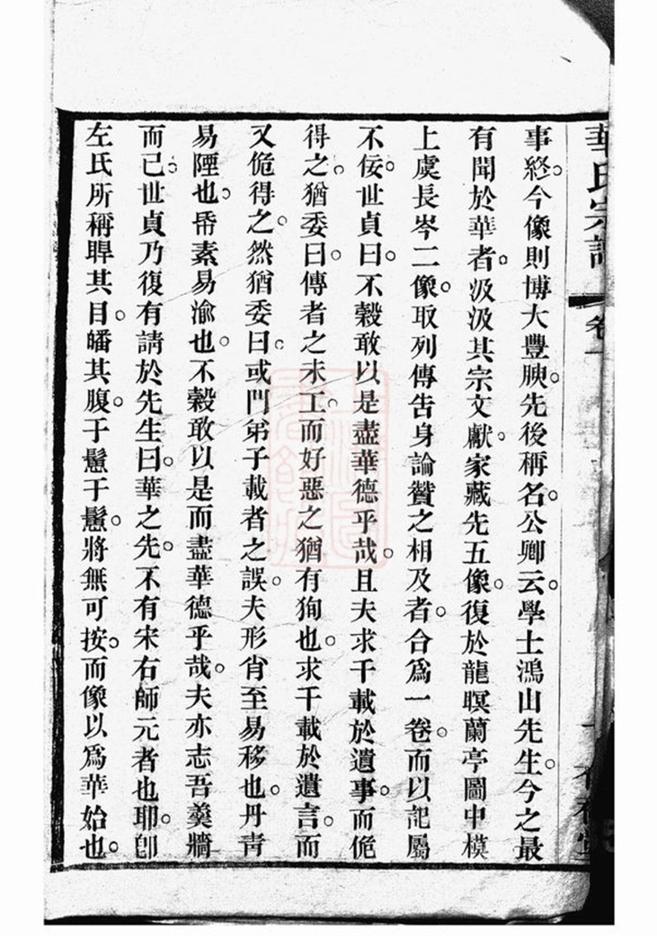 華氏宗譜 卷一
事終今像則博大豐腴先後稱名公卿云學士鴻山先生今之最
有聞於華者汲汲其宗文獻家藏先五像復於龍暝蘭亭圖中模
上虞長岑二像取列傳告身論贊之相及者合爲一卷而以記屬
不佞世貞曰不穀敢以是盡華德乎哉且夫求千載於遺事而傀
得之猶委曰傳者之未工而好惡之猶有狥也求千載於遺言而
又傀得之然猶委曰或門弟子載者之誤夫形肖至易移也丹青
易陻也帋素易渝也不穀敢以是而盡華德乎哉夫亦志吾羹牆
而已世貞乃復有請於先生曰華之先不有宋右師元者也耶卽
左氏所稱睅其目皤其腹于鬛于鬛將無可按而像以爲華始也